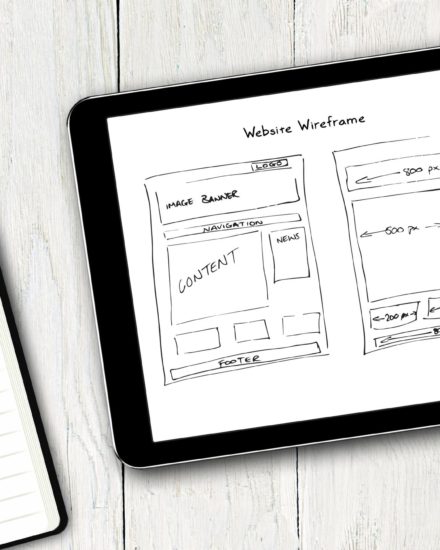 Website Wireframe
LOGO
IMAGE BANNER
NAVIGATION
CONTENT
NEWS
FOOTER
800 px
600 px
200 px